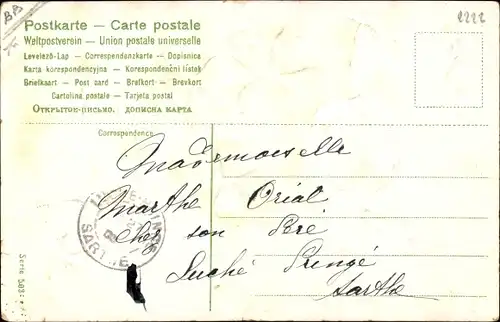 BB
2222
Postkarte — Carte postale
Weltpostverein — Union postale universelle
Levelező-Lap — Correspondenzkarte — Dopisnica
Karta korespondencyjna — Korespondenční lístek
Briefkaart — Post card — Brefkort — Brevkort
Cartolina postale — Tarjeta postal
Открытое-письмо. дописна карта
Correspondence
Mademoiselle
Marthe Orial
chez son Père
Luché Pringé
Sarthe
SARTHE
Serie 583